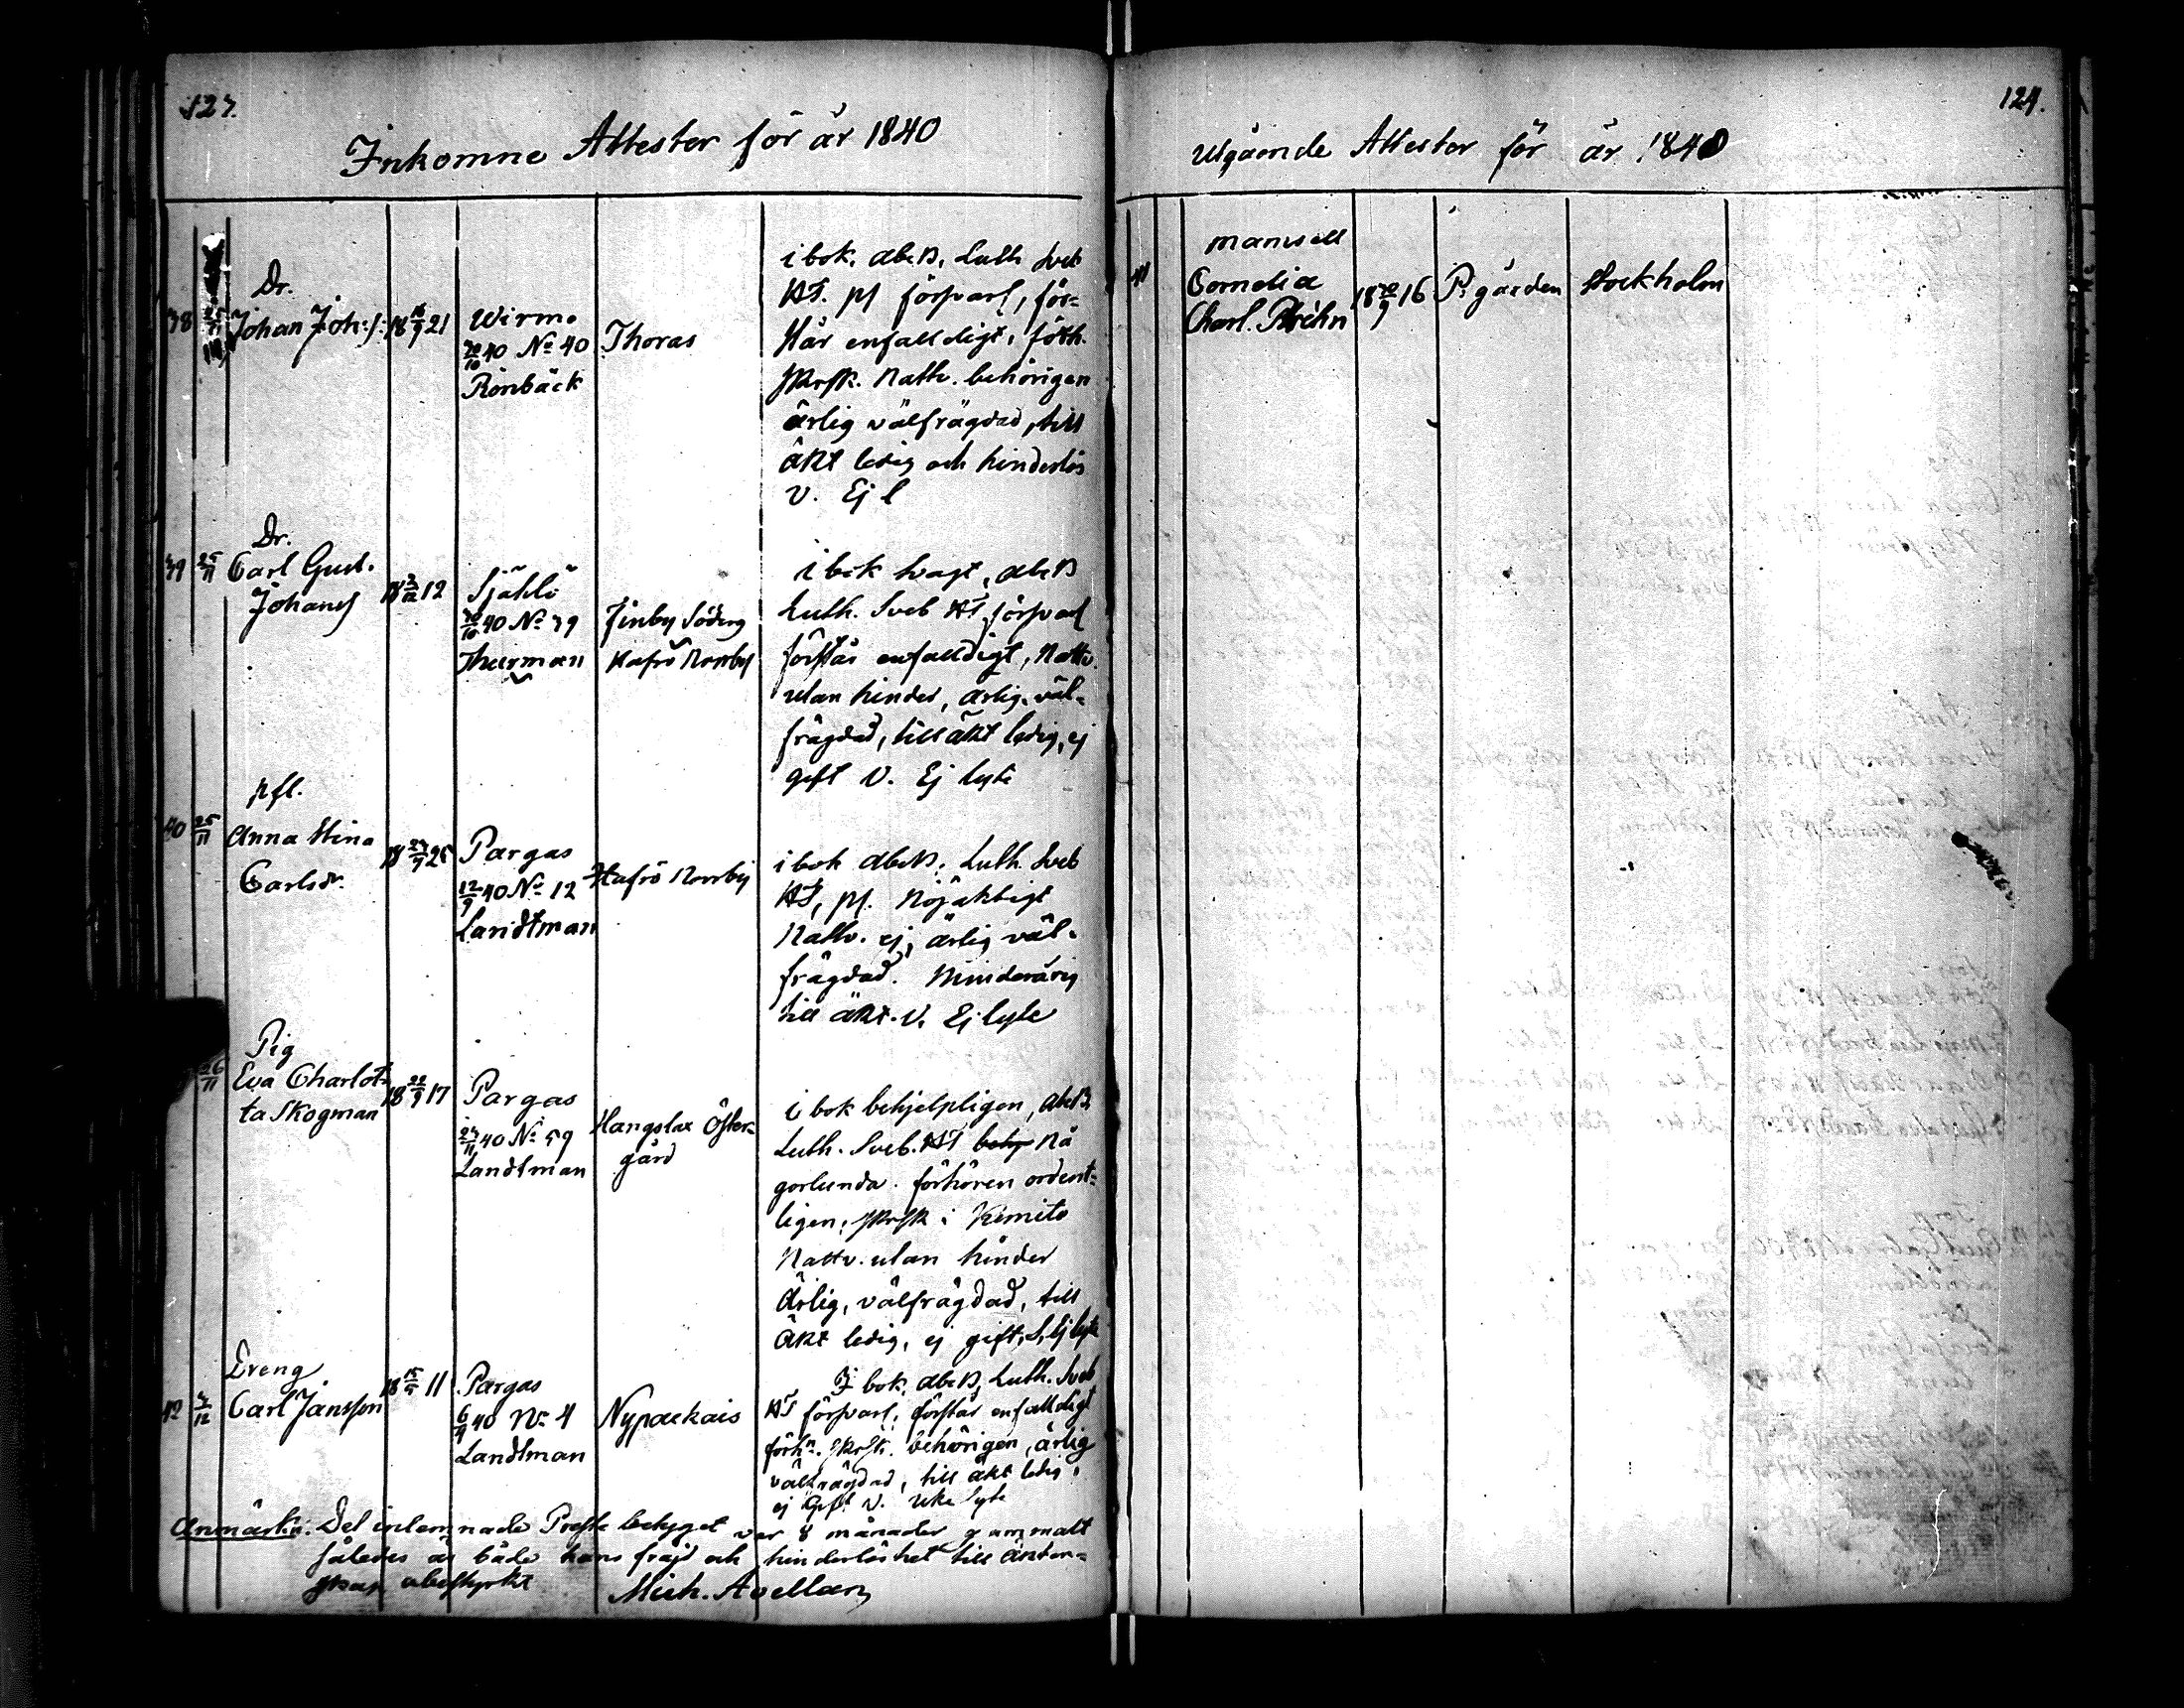 123.
Inkomne Attester för år 1840
38 25/11
Dr.
Johan Joh:s:
18 18/9 21
Wirmo
30/10 40 No 40
Rönbäck
Thoras
i bok, abeB, Luth Sveb
HT. pf försvarl, för=
står enfalldigt, förh.
skrsk. Nattv. behörigen
ärlig välfrägdad, till
äkt ledig och hinderlös
V. Ej l
39 25/11
Dr.
Carl Gust.
Johansf
18 3/12 12
Själö
30/10 40 No 39
Thurman
Finby Söderg
Hafrö Norrby
i bok svagt, abeB
Luth. Sveb HT försvarl
förstår enfalldigt, Nattv.
utan hinder, ärlig, väl=
frägdad, till äkt ledig, ej
gift V. Ej lyte
40 25/11
pfl.
Anna Stina
Carlsdr.
18 23/9 25
Pargas
12/9 40 No 12
Landtman
Hafrö Norrby
i bok abeB, Luth. Sveb
HT, pf. Nöjaktigt
Nattv. ej, ärlig väl=
frägdad. Minderårig
till äkt. V. Ej lyte
26/11
Pig
Eva Charlot=
ta Skogman
18 22/9 17
Pargas
23/11 40 No 59
Landtman
Hangslax Öster=
gård
i bok behjelpligen, abeB,
Luth. Sveb. HT behj nå
gorlunda. förhören ordent=
ligen, skrsk i Kimito
Nattv. utan hinder
Ärlig, välfrägdad, till
äkt ledig, ej gift, V, Ej lyte
42 3/12
Dreng
Carl Jansson
18 15/5 11
Pargas
6/4 40 No 4
Landtman
Nypaekais
I bok, abeB, Luth. Sveb
HT försvarl, förstår enfalldigt
förhn. skrsk. behörigen, ärlig
välfrägdad, till äkt ledig,
ej Gift V. Utan lyte
Anmärkn: Det inlemnade Preste betyget var 8 månader gammalt
således är både hans fräjd och hinderlöshet till äkten=
skap obestyrkt
Mich. Avellan
124.
Utgående Attester för år 1840
41
Mamsell
Cornelia
Charl. Prehn
18 30/9 16
P: gården
Stockholm